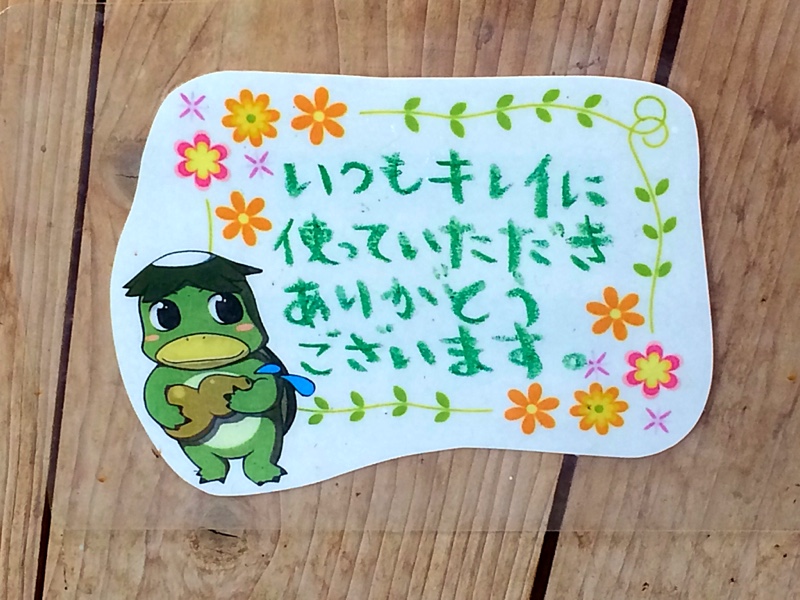 いつもキレイに
使っていただき
ありがとう
ございます。